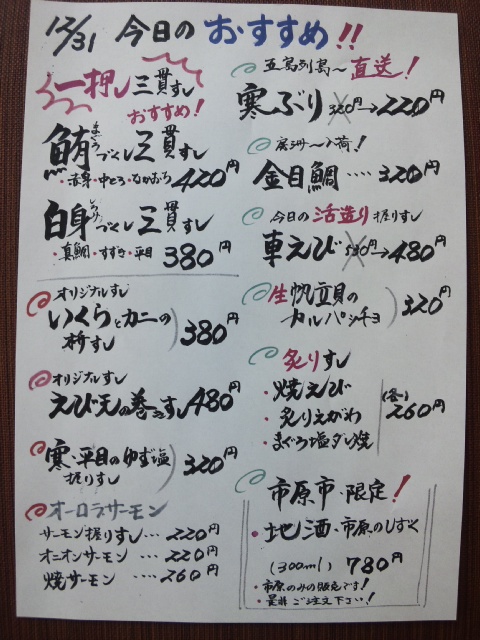 12/31 今日の おすすめ!!
一押し三貫すし
おすすめ!
鮪づくし三貫すし
・赤身・中とろ・なかおち 420円
白身づくし三貫すし
・真鯛・すずき・平目 380円
オリジナルすし
いくらとカニの
桝すし 380円
オリジナルすし
えび天の巻きすし 480円
寒・平目のゆず塩
握りすし 320円
オーロラサーモン
サーモン握りすし… 220円
オニオンサーモン … 220円
焼サーモン …. 260円
五島列島〜直送!
寒ぶり 320円→220円
〜入荷!
金目鯛 …. 320円
今日の活造り握りすし
車えび 530円→480円
生帆立貝の
カルパッチョ 320円
炙りすし
・焼えび
・炙りえがわ (各) 260円
・まぐろ塩ダレ焼
市原市・限定!
・地酒・市原のしずく
(300ml) 780円
・市原のみの販売です!
・是非ご注文下さい!